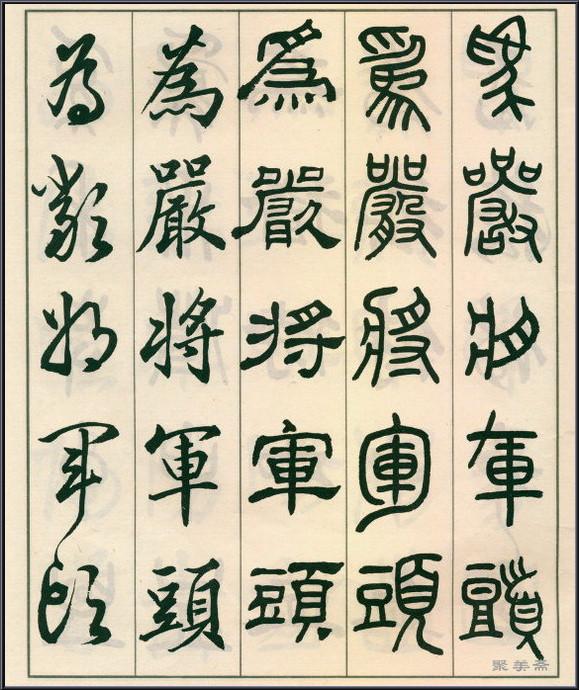 為嚴將軍頭
為嚴將軍頭
為嚴將軍頭
為嚴將軍頭
為嚴將軍頭
聚美斋